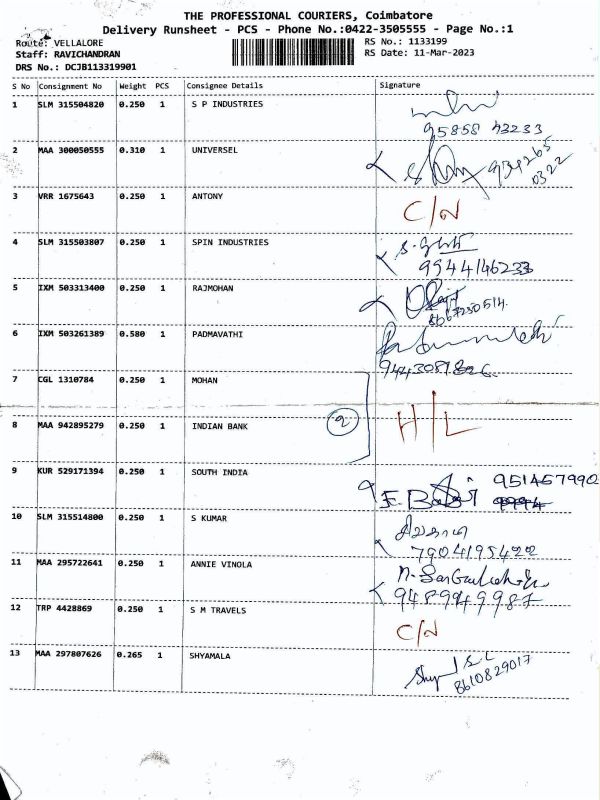 THE PROFESSIONAL COURIERS, Coimbatore
Delivery Runsheet - PCS - Phone No.:0422-3505555 - Page No.:1
Route: VELLALORE
Staff: RAVICHANDRAN
DRS No.: DCJB113319901
RS No.: 1133199
RS Date: 11-Mar-2023
S No Consignment No Weight PCS Consignee Details Signature
1 SLM 315504820 0.250 1 S P INDUSTRIES
95858 43233
2 MAA 300050555 0.310 1 UNIVERSEL
934265
0322
3 VRR 1675643 0.250 1 ANTONY C/N
4 SLM 315503807 0.250 1 SPIN INDUSTRIES
9944146233
5 IXM 503313400 0.250 1 RAJMOHAN
8667230514
6 IXM 503261389 0.580 1 PADMAVATHI
7 CGL 1310784 0.250 1 MOHAN
8 MAA 942895279 0.250 1 INDIAN BANK 2 H/L
9 KUR 529171394 0.250 1 SOUTH INDIA
951467990
10 SLM 315514800 0.250 1 S KUMAR
7904195422
11 MAA 295722641 0.250 1 ANNIE VINOLA
9489949987
12 TRP 4428869 0.250 1 S M TRAVELS C/N
13 MAA 297807626 0.265 1 SHYAMALA
8610829017